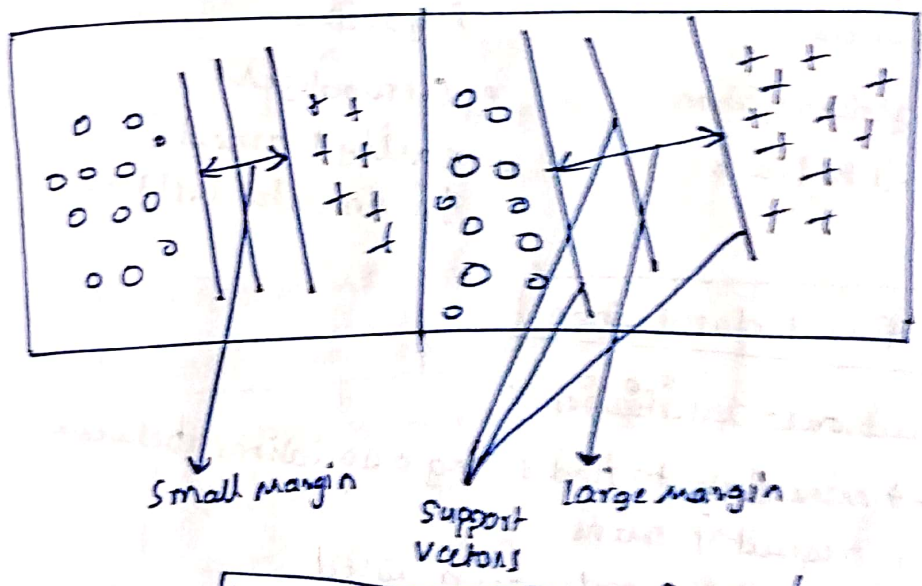 Small margin
Support
Vectors
large margin